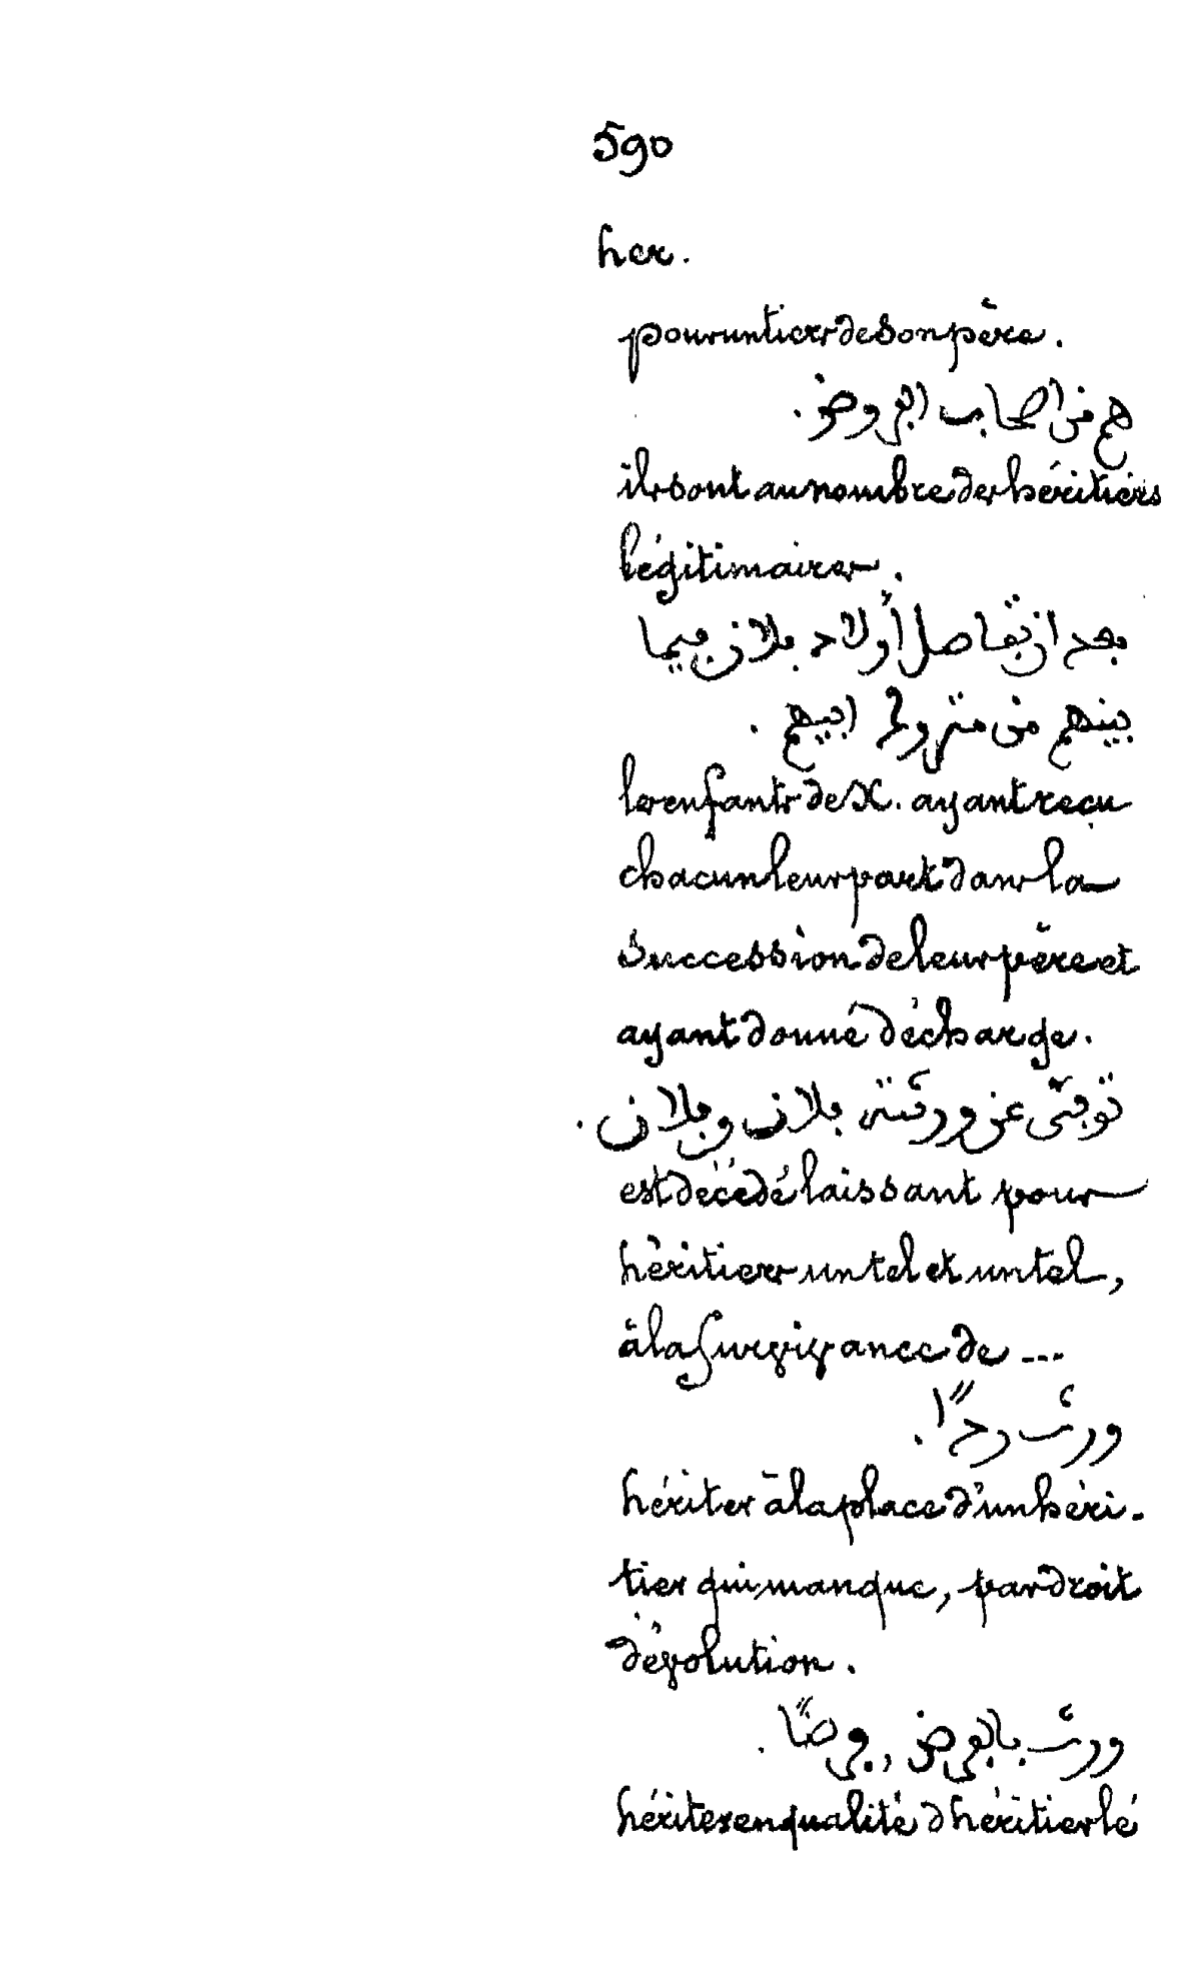 590
her.
pour un tiers de son père.
هم من اصحاب البروض.
ils sont au nombre des héritiers
légitimaires.
بعد ان تفاصل أولاد بلان فيما
بينهم من متروك ابيهم.
les enfants de X. ayant reçu
chacun leur part dans la
succession de leur père et
ayant donné décharge.
توفى عن ورثته بلان وبلان.
est décédé laissant pour
héritiers un tel et un tel,
à la survivance de ...
ورث ردًا.
hériter à la place d'un héri-
tier qui manque, par droit
dévolution.
ورث بالفرض, فرضًا.
hériter en qualité d'héritier lé